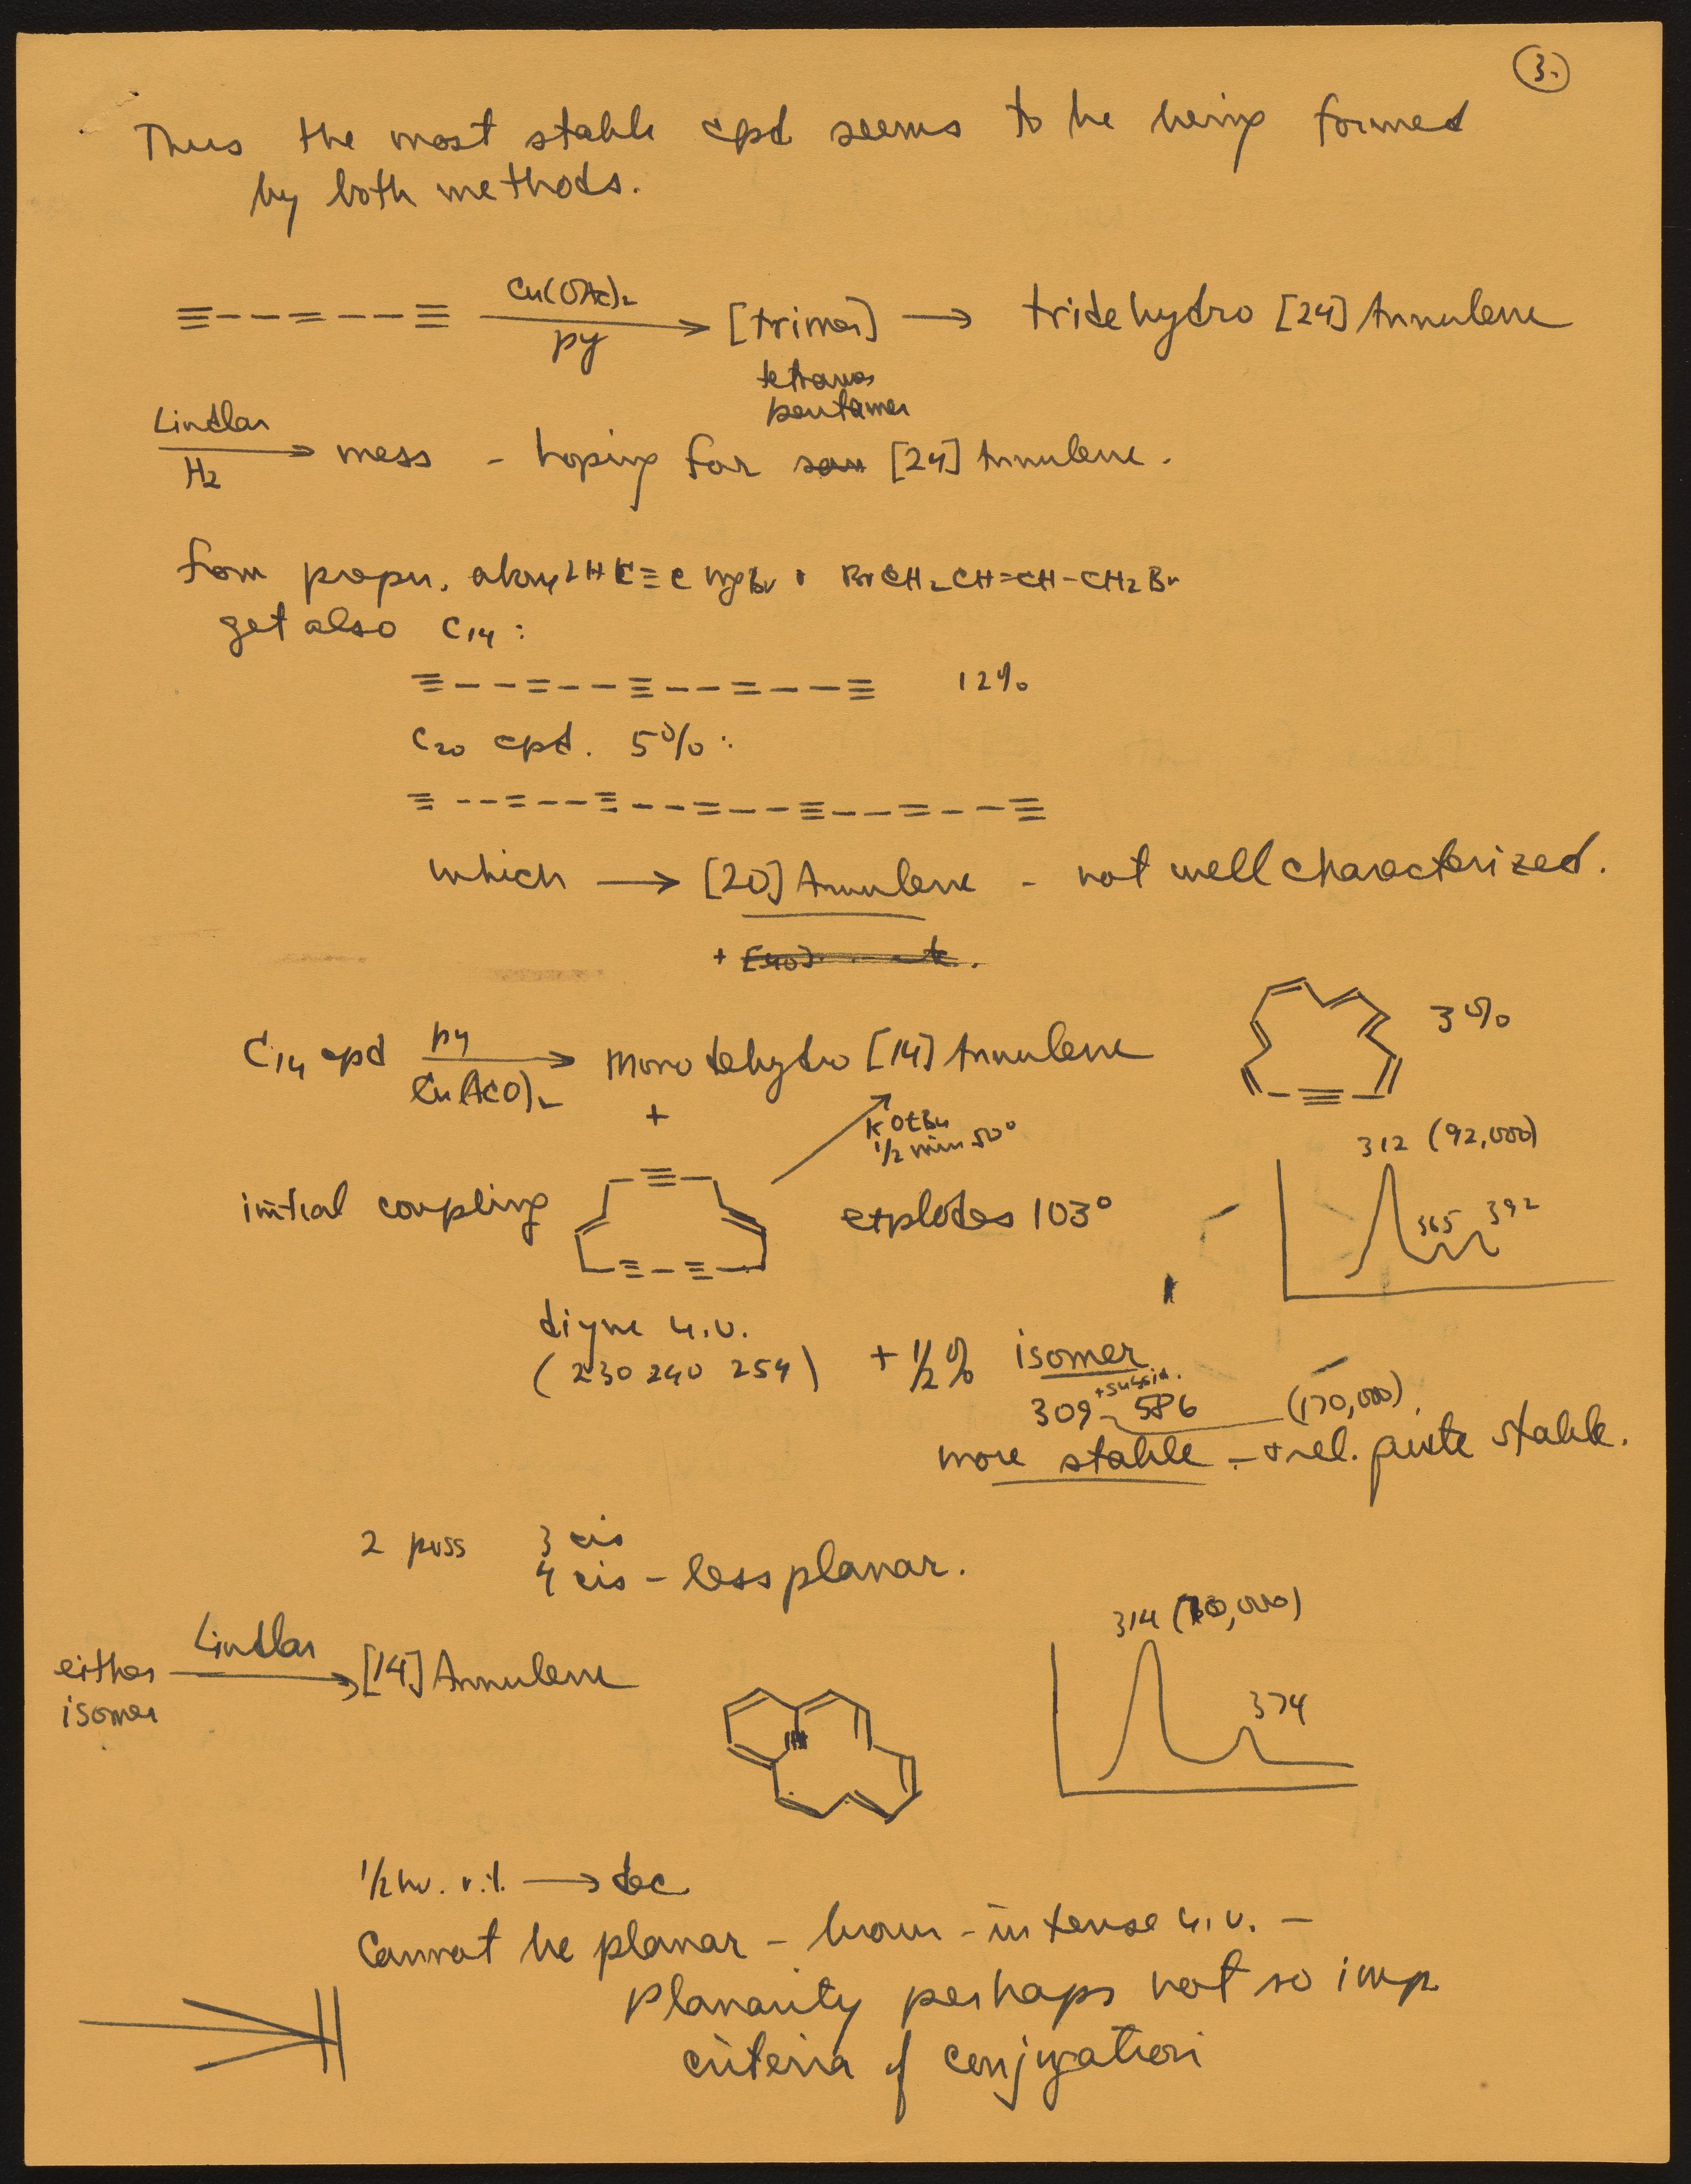 3.
Thus the most stable cpd seems to be being formed
by both methods.
≡--=--≡ Cu(OAc)2 py → [trimer] → tridehydro [24] Annulene
tetramer
pentamer
Lindlar H2 → mess - hoping for [24] Annulene.
from prepn. HC≡C MgBr + BrCH2CH=CH-CH2Br
get also C14:
≡--=--≡--=--≡ 12%
C20 cpd. 5%:
≡--=--≡--=--≡--=--≡
which → [20] Annulene - not well characterized.
+ [40]
C14 cpd py Cu(AcO)2 → mono dehydro [14] Annulene 3%
+
KOtBu
1/2 min 50°
initial coupling explodes 103°
312 (92,000)
365 392
diyne u.v.
(230 240 254)
+ 1/2% isomer
309 586 (170,000)
more stable - + rel. quite stable.
2 poss 3 cis
4 cis - less planar.
either isomer Lindlar → [14] Annulene
314 (70,000)
374
1/2 hr. r.t. → dec
Cannot be planar - brown - intense u.v. -
planarity perhaps not so imp
criteria of conjugation